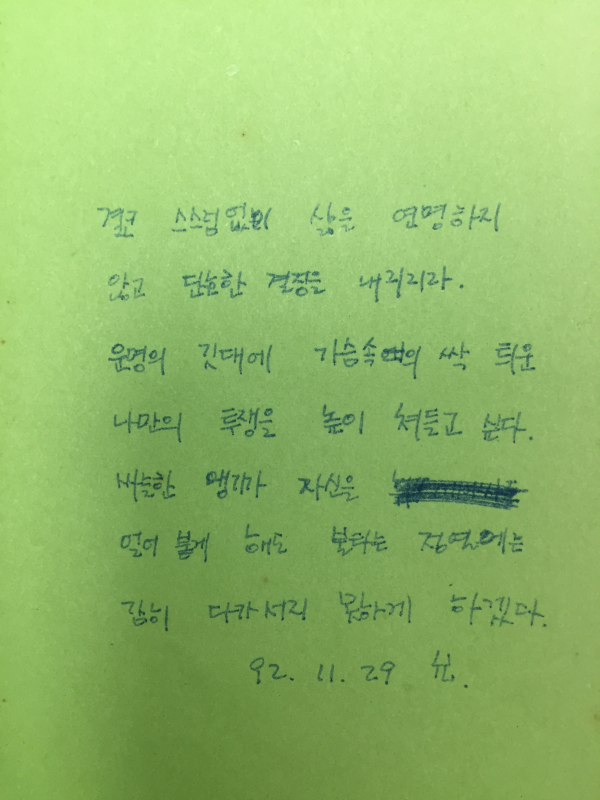 결코 스스럼없이 삶을 연명하지
않고 단호한 결정을 내리리라.
운명의 깃대에 가슴속의 싹 틔운
나만의 투쟁을 높이 쳐들고 싶다.
싸늘한 냉기가 자신을
얼어 붙게 해도 불타는 정열에는
감히 다가서지 못하게 하겠다.
92. 11. 29